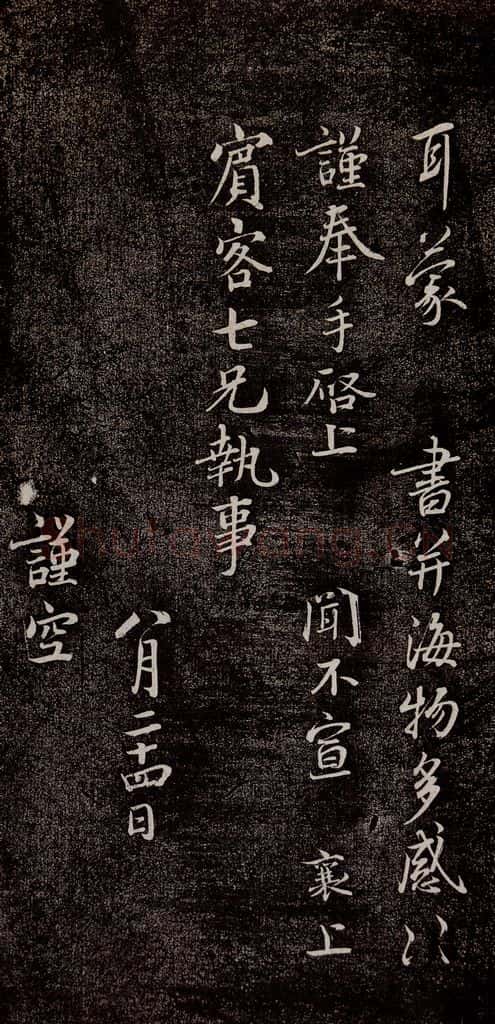 耳蒙 書并海物多感〻
謹奉手啓上 聞不宣 襄上
賓客七兄執事
八月二十四日
謹空